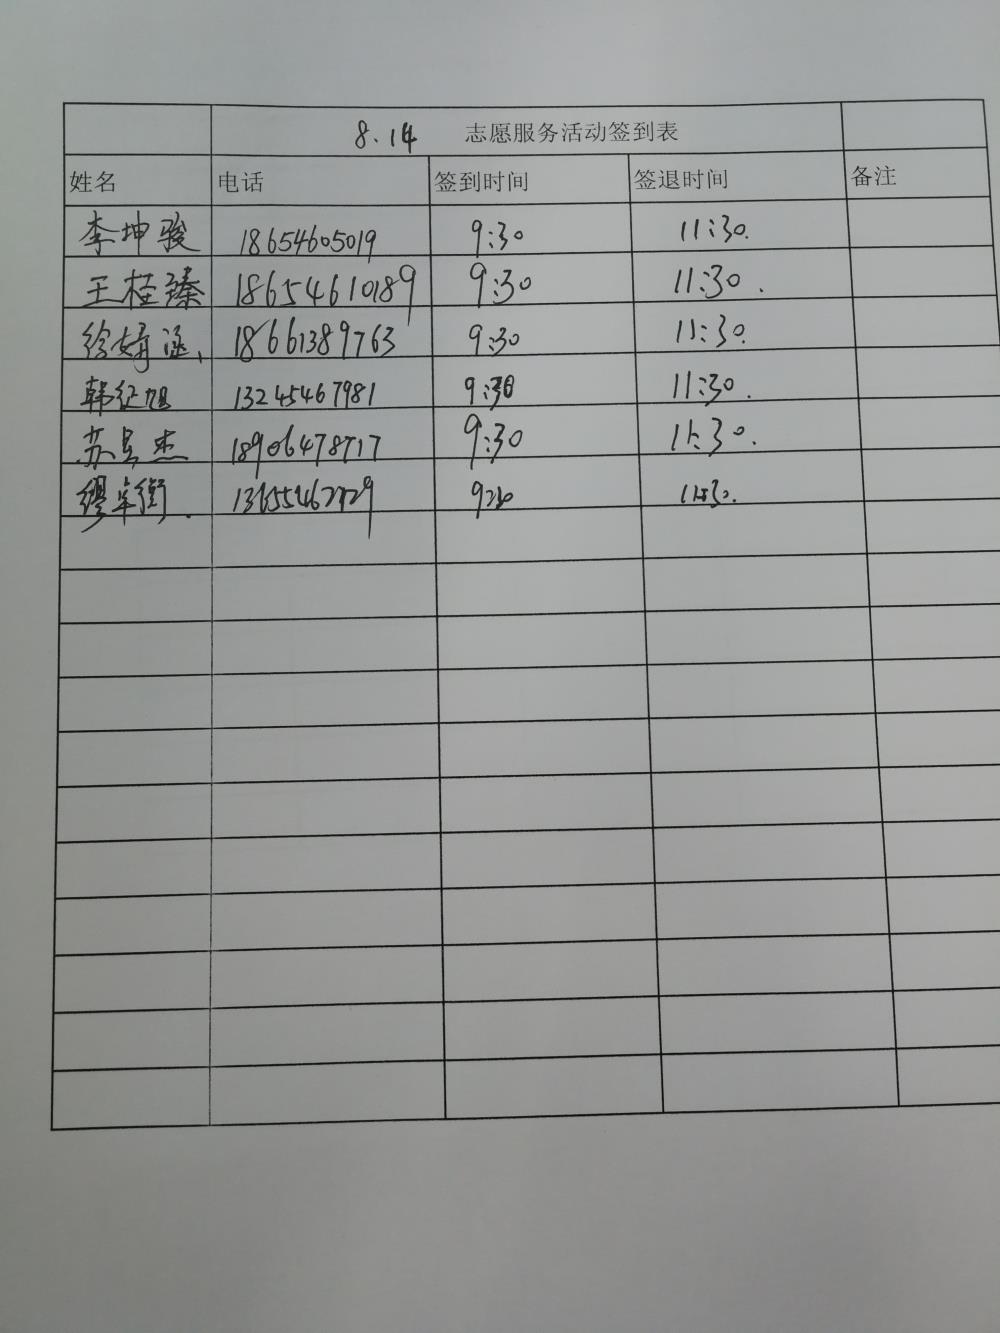 8.14 志愿服务活动签到表
姓名 电话 签到时间 签退时间 备注
李坤骏 18654605019 9:30 11:30.
王桂臻 18654610189 9:30 11:30.
徐婧涵、 18661389763 9:30 11:30.
韩征旭 13245467981 9:30 11:30.
苏昱杰 18906478717 9:30 11:30.
缪卓衡. 9:30 11:30.